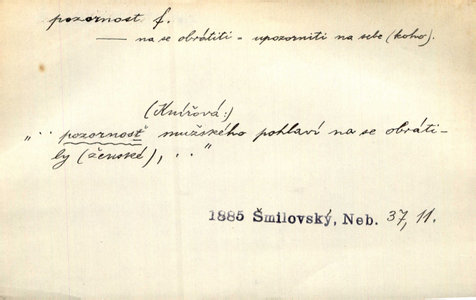 pozornost f.
—— na se obrátiti = upozorniti na sebe (koho).
(Knířová:)
„ ·· pozornost mužského pohlaví na se obráti-
ly (ženské), ··"
1885 Šmilovský, Neb. 37, 11.